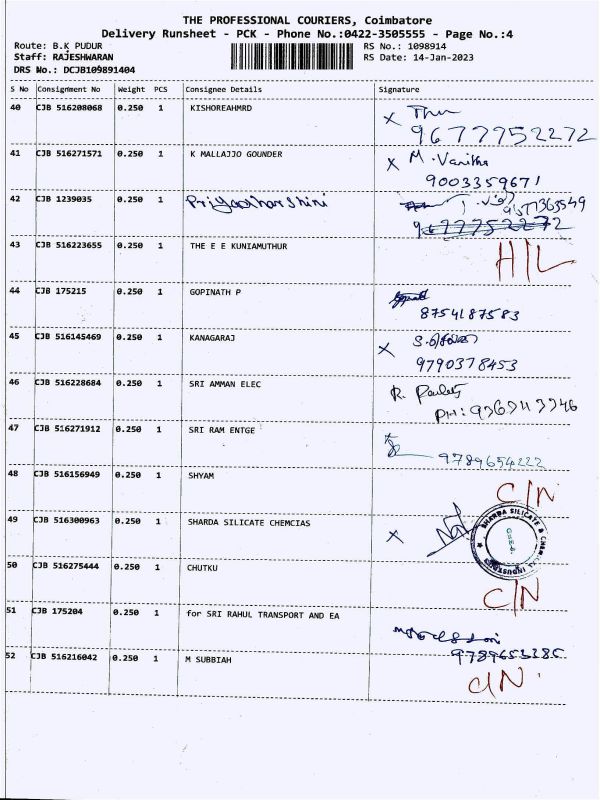 THE PROFESSIONAL COURIERS, Coimbatore
Delivery Runsheet - PCK - Phone No.:0422-3505555 - Page No.:4
Route: B.K PUDUR
RS No.: 1098914
Staff: RAJESHWARAN
RS Date: 14-Jan-2023
DRS No.: DCJB109891404
S No Consignment No Weight PCS Consignee Details Signature
40 CJB 516208068 0.250 1 KISHOREAHMRD
x
9677752272
41 CJB 516271571 0.250 1 K MALLAJJO GOUNDER
x M. Vanitha
9003359671
42 CJB 1239035 0.250 1 Priyadharshini
9677363549
9677752272
43 CJB 516223655 0.250 1 THE E E KUNIAMUTHUR
H/L
44 CJB 175215 0.250 1 GOPINATH P
8754187583
45 CJB 516145469 0.250 1 KANAGARAJ
x
9790378453
46 CJB 516228684 0.250 1 SRI AMMAN ELEC
R.
PH:
47 CJB 516271912 0.250 1 SRI RAM ENTGE
9789654222
48 CJB 516156949 0.250 1 SHYAM
C/N
49 CJB 516300963 0.250 1 SHARDA SILICATE CHEMCIAS
x
SHARDA SILICATE & CHEMICAL INDUSTRIES
50 CJB 516275444 0.250 1 CHUTKU
C/N
51 CJB 175204 0.250 1 for SRI RAHUL TRANSPORT AND EA
52 CJB 516216042 0.250 1 M SUBBIAH
C/N